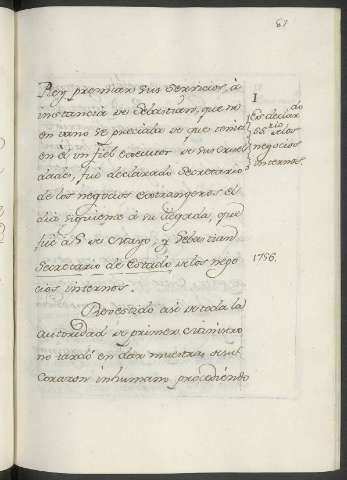 61
Rey premiar sus servicios, á
instancia de Sebastian, que no
en vano se preciaba de que tenia
en él un fiel executor de sus cruel
dades, fué declarado Secretario
de los negocios extrangeros el
dia siguiente á su llegada, que
fué á 5 de Mayo, y Sebastian
Secretario de Estado de los nego
cios internos.
Revestido así de toda la
autoridad de primer Ministro
no tardó en dar muestras de su
corazon inhumano procediendo
I
Es declarado
Srio de los
negocios
internos.
1756.